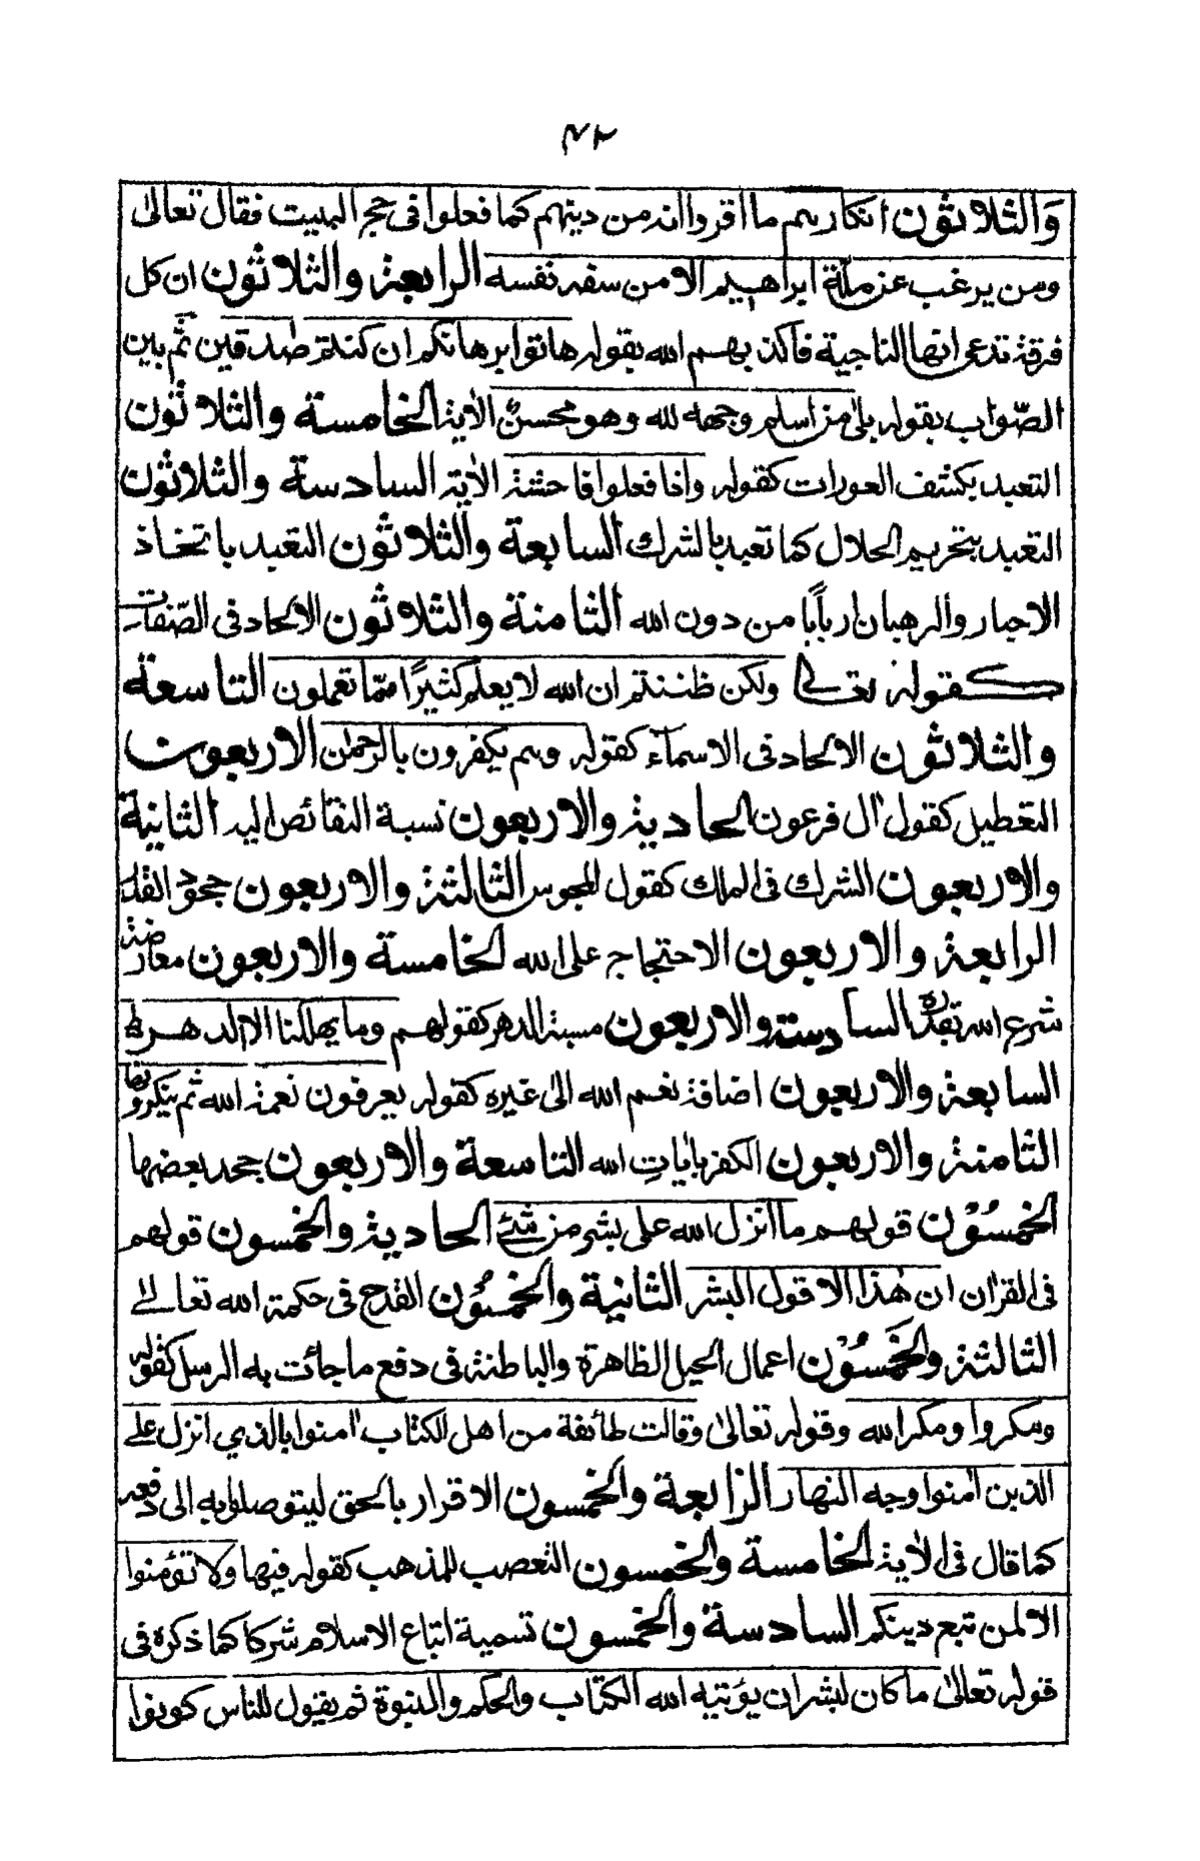 ٤٢
وَالثلاثون انكارهم ما اقروا انه من دينهم كما فعلوا فى حجر البيت فقال تعالىٰ
ومن يرغب عن ملّة ابراهيم الا من سفه نفسه الرابعة والثلاثون ان كل
فرقة تدعى انها الناجية فاكذبهم الله بقوله هاتوا برهانكم ان كنتم صٰدقين ثم بين
الصّواب بقوله بلىٰ من اسلم وجهه لله وهو محسنٌ الاٰية الخامسة والثلاثون
التعبد بكشف العورات كقوله واذا فعلوا فاحشة الاٰية السادسة والثلاثون
التعبد بتحريم الحلال كما تعبد بالشرك السابعة والثلاثون التعبد باتخاذ
الاحبار والرهبان ارباباً من دون الله الثامنة والثلاثون الالحاد فى الصّفات
كقوله تعالىٰ ولكن ظننتم ان الله لا يعلم كثيرًا ممّا تعملون التاسعة
والثلاثون الالحاد فى الاسمآء كقوله وهم يكفرون بالرحمٰن الاربعون
التعطيل كقول اٰل فرعون الحادية والاربعون نسبة النقائص اليه الثانية
والاربعون الشرك فى الملك كقول المجوس الثالثة والاربعون جحود القدر
الرابعة والاربعون الاحتجاج على الله الخامسة والاربعون معارضة
شرع الله بقدره السادسة والاربعون مسبة الدهر كقولهم وما يهلكنا الا الدهر
السابعة والاربعون اضافة نعم الله الى غيره كقوله يعرفون نعمة الله ثم ينكرونها
الثامنة والاربعون الكفر باٰيات الله التاسعة والاربعون جحد بعضها
الخمسُوْن قولهم ما انزل الله على بشر من شئ الحادية والخمسون قولهم
فى القراٰن ان هٰذا الا قول البشر الثانية والخمسُون القدح فى حكمة الله تعالىٰ
الثالثة والخَمسُوْن اعمال الحيل الظاهرة والباطنة فى دفع ما جائت به الرسل كقوله
ومكروا ومكر الله وقوله تعالىٰ وقالت طائفة من اهل الكتاب اٰمنوا بالذي انزل على
الذين اٰمنوا وجه النهار الرابعة والخمسون الاقرار بالحق ليتوصلوا به الى دفعه
كما قال فى الاٰية الخامسة والخمسون التعصب للمذهب كقوله فيها ولا تؤمنوا
الا لمن تبع دينكم السادسة والخمسون تسمية اتباع الاسلام شركا كما ذكره فى
قوله تعالىٰ ما كان لبشر ان يؤتيه الله الكتاب والحكم والنبوة ثم يقول للناس كونوا